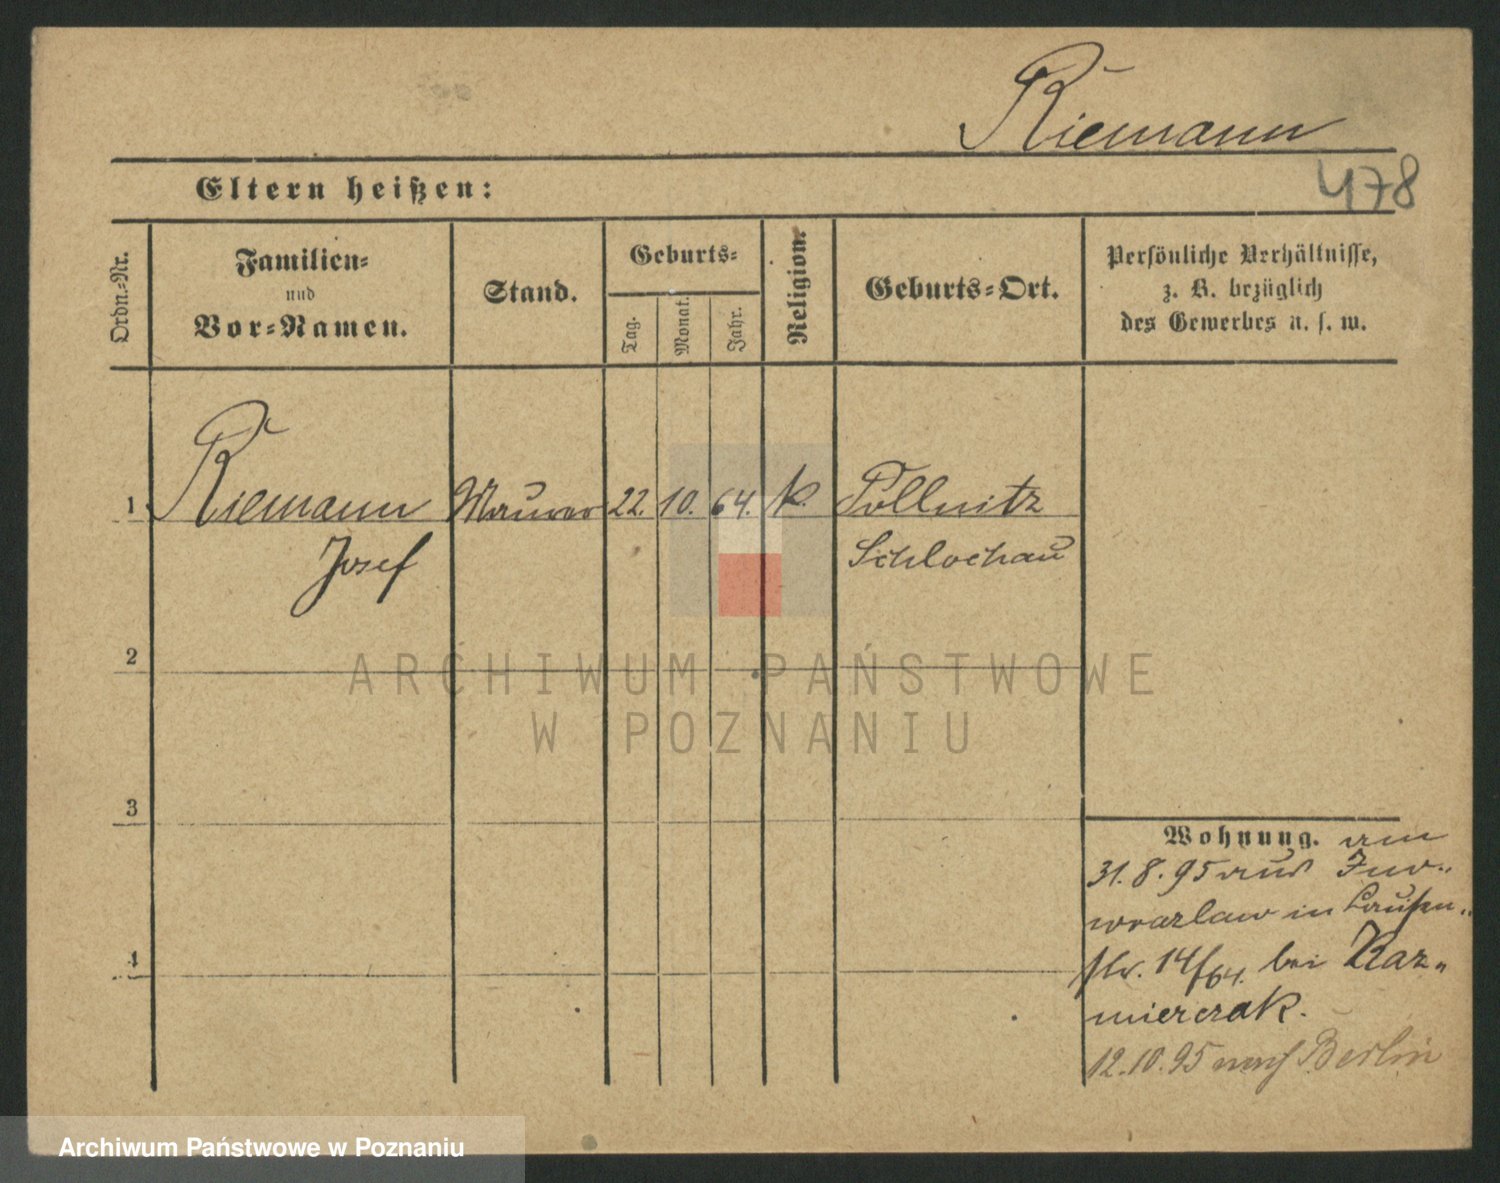 Riemann
478
Eltern heißen:
Ordn.-Nr.
Familien-
und
Vor-Namen.
Stand.
Geburts-
Tag.
Monat.
Jahr.
Religion.
Geburts-Ort.
Persönliche Verhältnisse,
z. B. bezüglich
des Gewerbes u. s. w.
1. Riemann Maurer 22. 10. 64. k. Pollnitz
Josef Schlochau
2
3
4
Wohnung. am
31.8.95 aus Ino-
wrazlaw in
str. 14/64. bei Kaz-
mierczak.
12.10.95 nach Berlin
ARCHIWUM PAŃSTWOWE
W POZNANIU
Archiwum Państwowe w Poznaniu